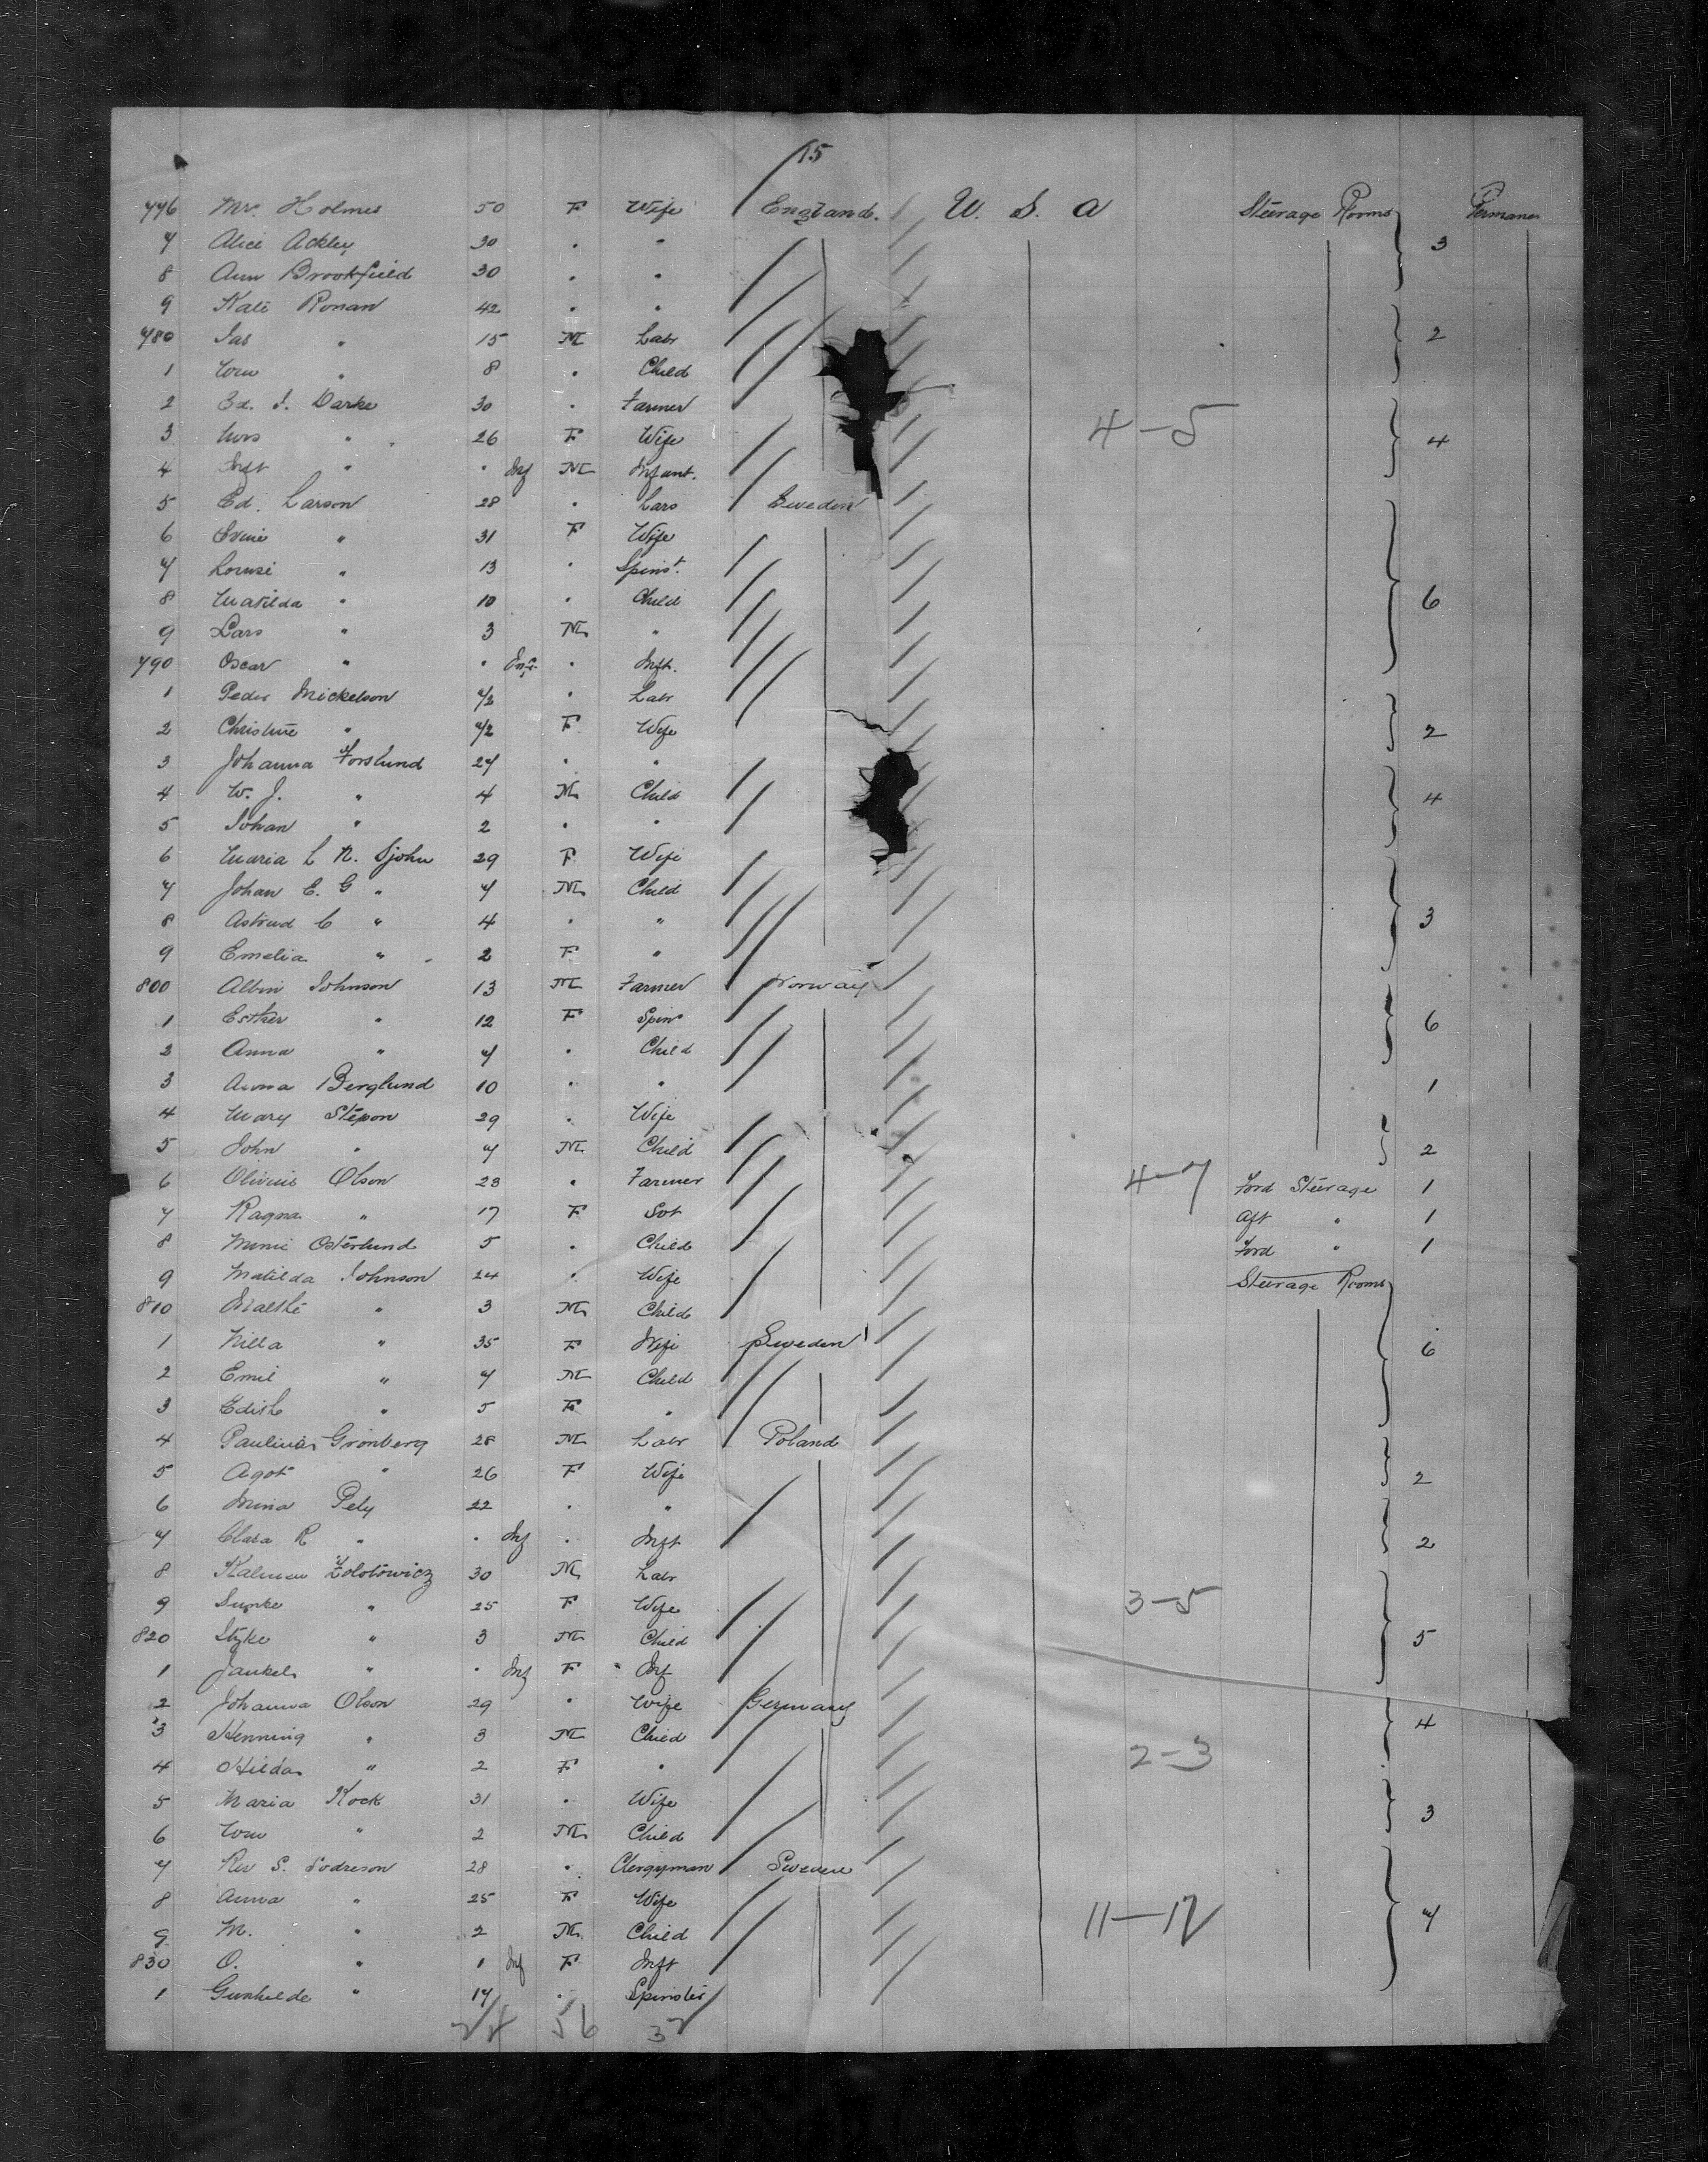 15
776 Mrs. Holmes 50 F Wife England. U. S. A Steerage Rooms Permanen
7 Alice Ackley 30 . " 3
8 Ann Brookfield 30 . "
9 Kate Ronan 42 . "
780 Jas " 15 M Labr 2
1 Wm " 8 . Child
2 Ed. J. Darke 30 . Farmer
3 Mrs " 26 F Wife 4-5 4
4 Inft " " Inf M Infant.
5 Ed. Larson 28 . Labr Sweden
6 " 31 F Wife
7 " 13 . Spinst.
8 Matilda " 10 . Child 6
9 Lars " 3 M "
790 Oscar " " Inf. . Inft.
1 Peder Mickelson 42 . Labr
2 Christine " 42 F Wife 2
3 Johanna Forslund 27 . "
4 W. J. " 4 M Child 4
5 Johan " 2 . "
6 Maria L N. Sjohn 29 F Wife
7 Johan E. G " 7 M Child
8 Astrud C " 4 . " 3
9 Emelia " 2 F "
800 Albin Johnson 13 M Farmer Norway
1 Esther " 12 F Spin 6
2 Anna " 7 . Child
3 Anna Berglund 10 . " 1
4 Mary Stepon 29 . Wife
5 John " 7 M Child 2
6 Olivius Olson 23 . Farmer 4-7 Ford Steerage 1
7 Ragna " 17 F Sot Aft " 1
8 Minie Osterlund 5 . Child Ford " 1
9 Matilda Johnson 24 . Wife Steerage Rooms
810 " 3 M Child
1 Nilla " 35 F Wife Sweden 6
2 Emil " 7 M Child
3 Edith " 5 F "
4 Paulinas Gronberg 28 M Labr Poland
5 Agot " 26 F Wife 2
6 Mina Pely 22 . "
7 Clara R " " Inf . Inft 2
8 Kalman Zolotowicz 30 M Labr
9 " 25 F Wife 3-5
820 " 3 M Child 5
1 Jankel " " Inf F " Inf
2 Johanna Olson 29 . Wife Germany
3 Henning " 3 M Child 4
4 Hilda " 2 F " 2-3
5 Maria Kock 31 . Wife 3
6 Wm " 2 M Child
7 Rev S. Sodreson 28 . Clergyman Sweden
8 Anna " 25 F Wife
9 M. " 2 M Child 11-12 7
830 O. " 1 Inf F Inft
1 Gunhilde " 17 . Spinster
56 32